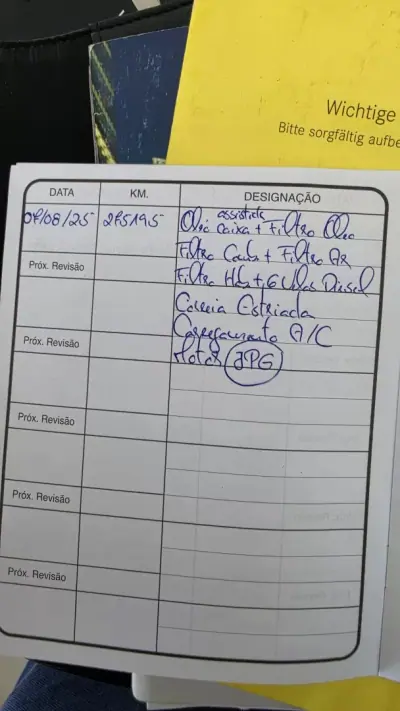 Wichtige
Bitte sorgfältig aufbe
DATA KM. DESIGNAÇÃO
07/08/25 275195 Oleo assistida Caixa + Filtro Oleo
Filtro Caixa + Filtro AR
Próx. Revisão Filtro Hab + 6 Velas Diesel
Correia Estriada
Próx. Revisão Carregamento A/C
JPG
Próx. Revisão
Próx. Revisão
Próx. Revisão